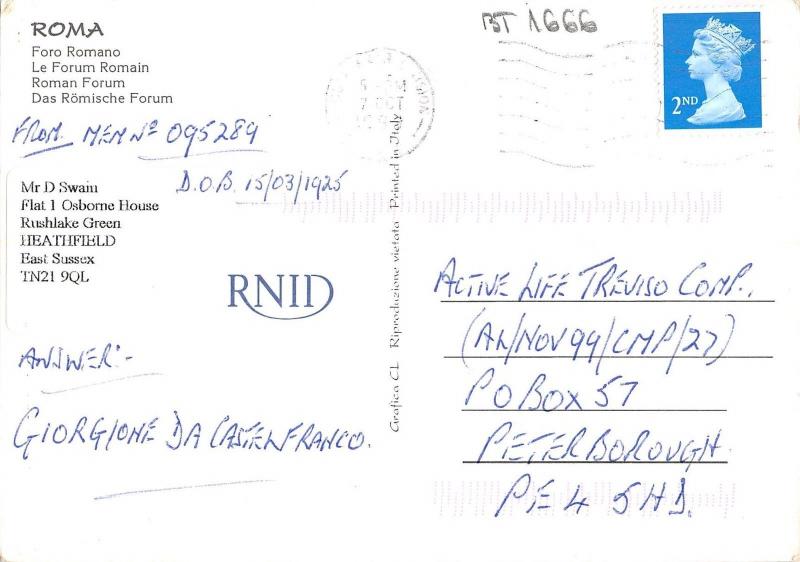 ROMA
Foro Romano
Le Forum Romain
Roman Forum
Das Römische Forum
BT 1666
2ND
7 OCT
FROM MEM Nº 095289
D.O.B. 15/03/1925
Mr D Swain
Flat 1 Osborne House
Rushlake Green
HEATHFIELD
East Sussex
TN21 9QL
RNID
ANSWER:-
GIORGIONE DA CASTELFRANCO.
Grafica CL Riproduzione vietata Printed in Italy
ACTIVE LIFE TREVISO COMP.,
(AL/NOV99/CMP/27)
PO BOX 57
PETERBOROUGH.
PE4 5HD.